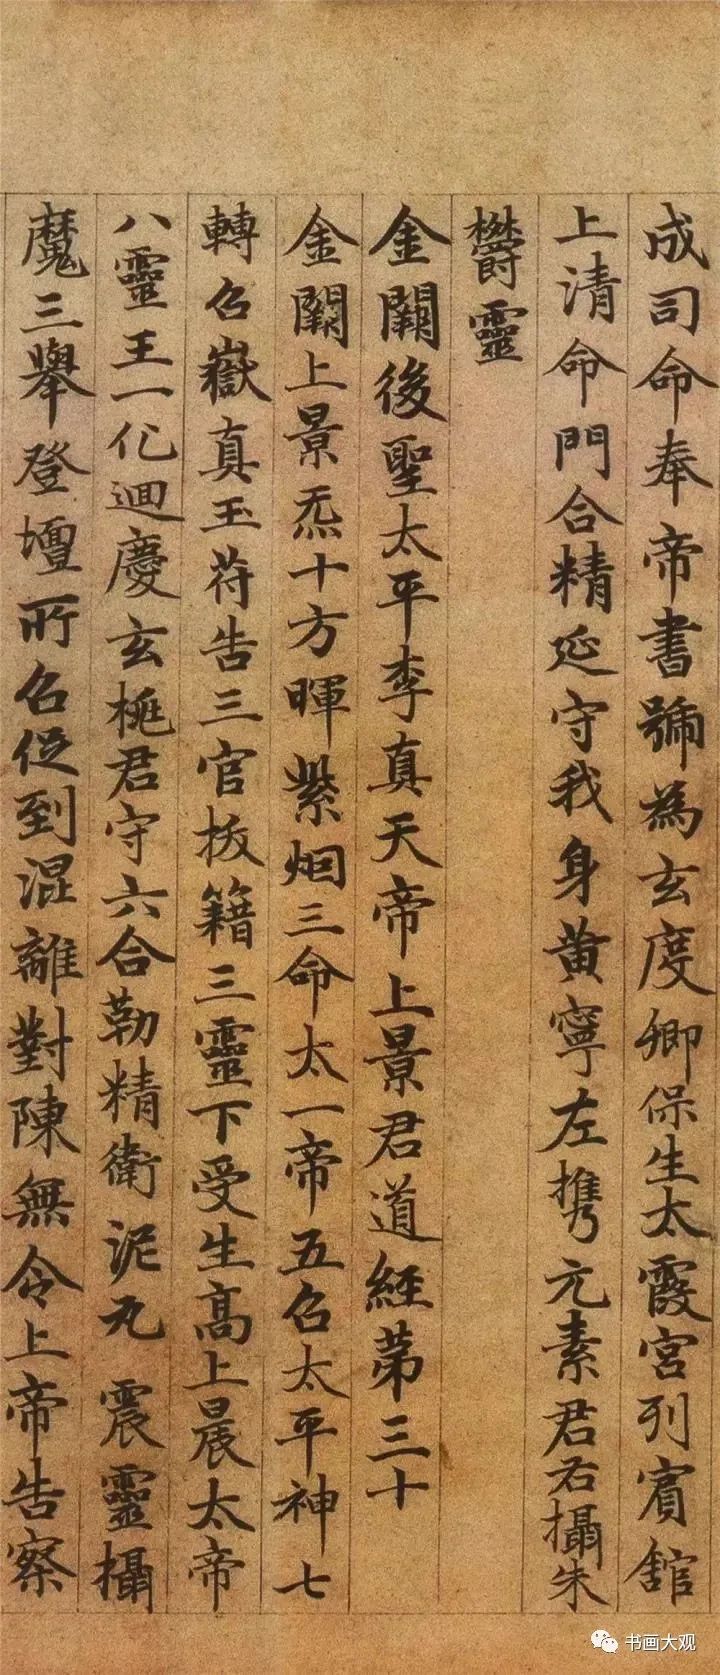 成司命奉帝書號為玄度卿保生太霞宮列賓舘
上清命門合精延守我身黃寧左携元素君右攝朱
欝靈
金闕後聖太平李真天帝上景君道經苐三十
金闕上景炁十方暉紫烟三命太一帝五召太平神七
轉召嶽真玉苻告三官拔籍三靈下受生高上晨太帝
八靈王一化迴慶玄桃君守六合勒精衛泥丸震靈攝
魔三舉登壇所召促到混離對陳無令上帝告察
书画大观